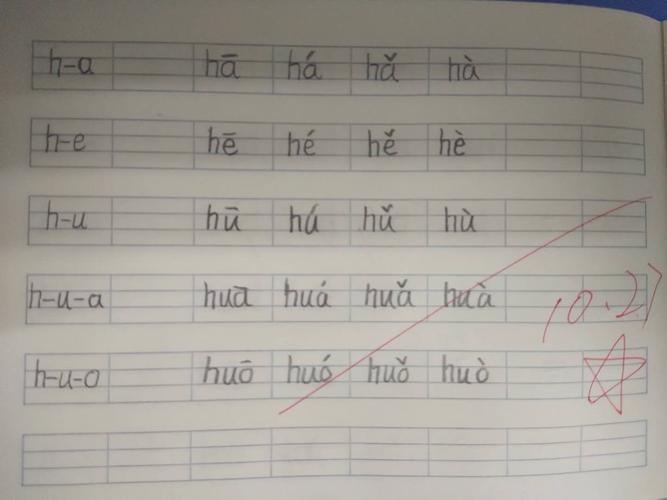 h-a hā há hǎ hà
h-e hē hé hě hè
h-u hū hú hǔ hù
h-u-a huā huá huǎ huà
h-u-o huō huó huǒ huò
10.27